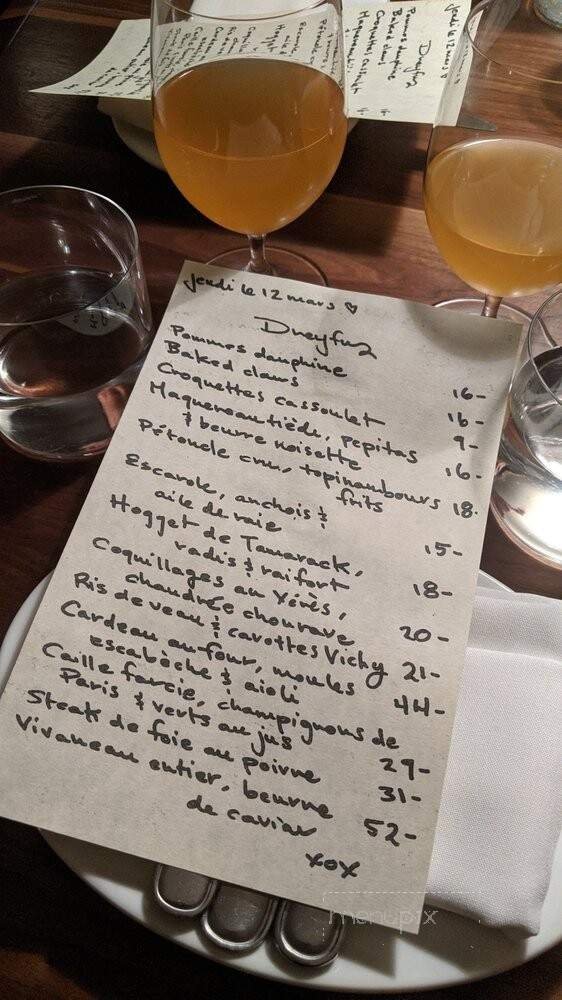 jeudi le 12 mars ♡
Dreyfus
Pommes dauphine 16-
Baked clams 16-
Croquettes cassoulet 9-
Maquereau tiède, pepitas
& beurre noisette 16-
Pétoncle cru, topinambours
frits 18-
Escarole, anchois &
aile de raie 15-
Hogget de Tamarack,
radis & raifort 18-
Coquillages au Xérès,
chaudrée chourave 20-
Ris de veau & carottes Vichy 21-
Cardeau au four, moules
escabèche & aioli 44-
Caille farcie, champignons de
Paris & verts au jus 29-
Steak de foie au poivre 31-
Vivaneau entier, beurre
de caviar 52-
xox
menupix